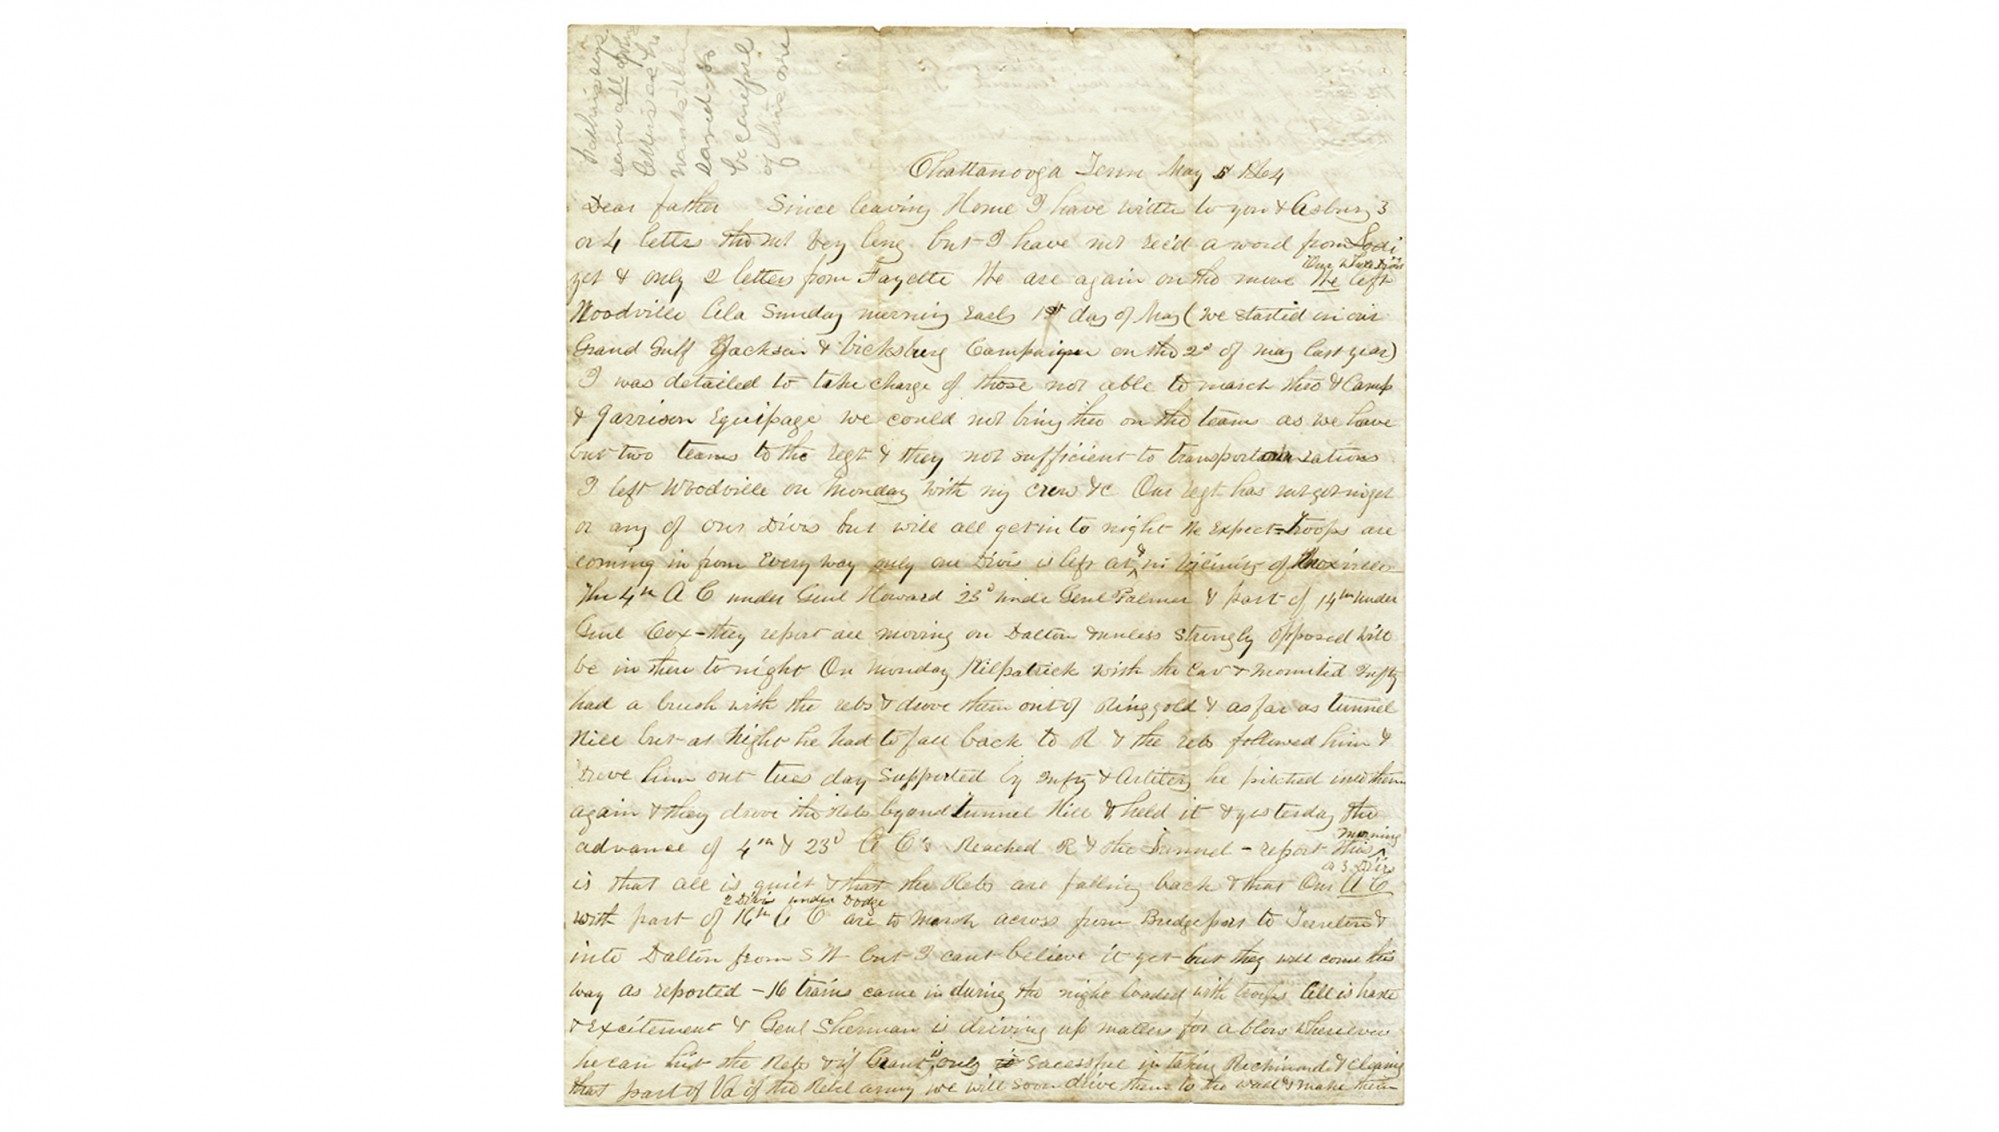 Nathan says
save all of his
letters as he
wants them
saved so
be careful
of this one
Chattanooga Tenn May 5 1864
Dear father Since leaving Home I have writtn to you & Asbury 3
or 4 letters tho not very long but I have not rec'd a word from Lodi
yet & only 2 letters from Fayette We are again on the move We left
Our whole Divis
Woodville Ala Sunday morning Early 1st day of May (we started in our
Grand Gulf Jackson & Vicksburg Campaign on the 2d of may last year)
I was detailed to take charge of those not able to march thro & Camp
& Garrison Equipage we could not bring thro on the teams as we have
but two teams to the regt & they not sufficient to transport our rations
I left Woodville on Monday with my crew &c Our regt has not got in yet
or any of our Divis but will all get in to night We Expect Troops are
coming in from Every way only one Divis is left at & in vicinity of Knoxville
The 4th A C under Genl Howard 23d under Genl Palmer & part of 14th under
Genl Cox - they report are moving on Dalton & unless strongly opposed will
be in there to night On Monday Kilpatrick with the Cav & mounted Infty
had a brush with the rebs & drove them out of Ringgold & as far as Tunnel
Hill but at Night he had to fall back to R & the rebs followed him &
Drove him out Tues day supported by Infty & Artilery he pitched into them
again & they drove the Rebs beyond Tunnel Hill & held it & yesterday the
advance of 4th & 23d A C's Reached R & the Tunnel - report this
morning
is that all is quiet & that the Rebs are falling back & that Our A C
a 3 Divis
with part of 16th A C are to March across from Bridgeport to Trenton &
2 Divis under Dodge
into Dalton from S W but I cant believe it yet but they will come this
way as reported - 16 trains came in during the night loaded with troops All is haste
& Excitement & Genl Sherman is driving up matters for a blow wherever
he can hit the Rebs & if Grant is only sucessful in taking Richmond & clearing
that part of Va of the Rebel army we will soon drive them to the wall & make them